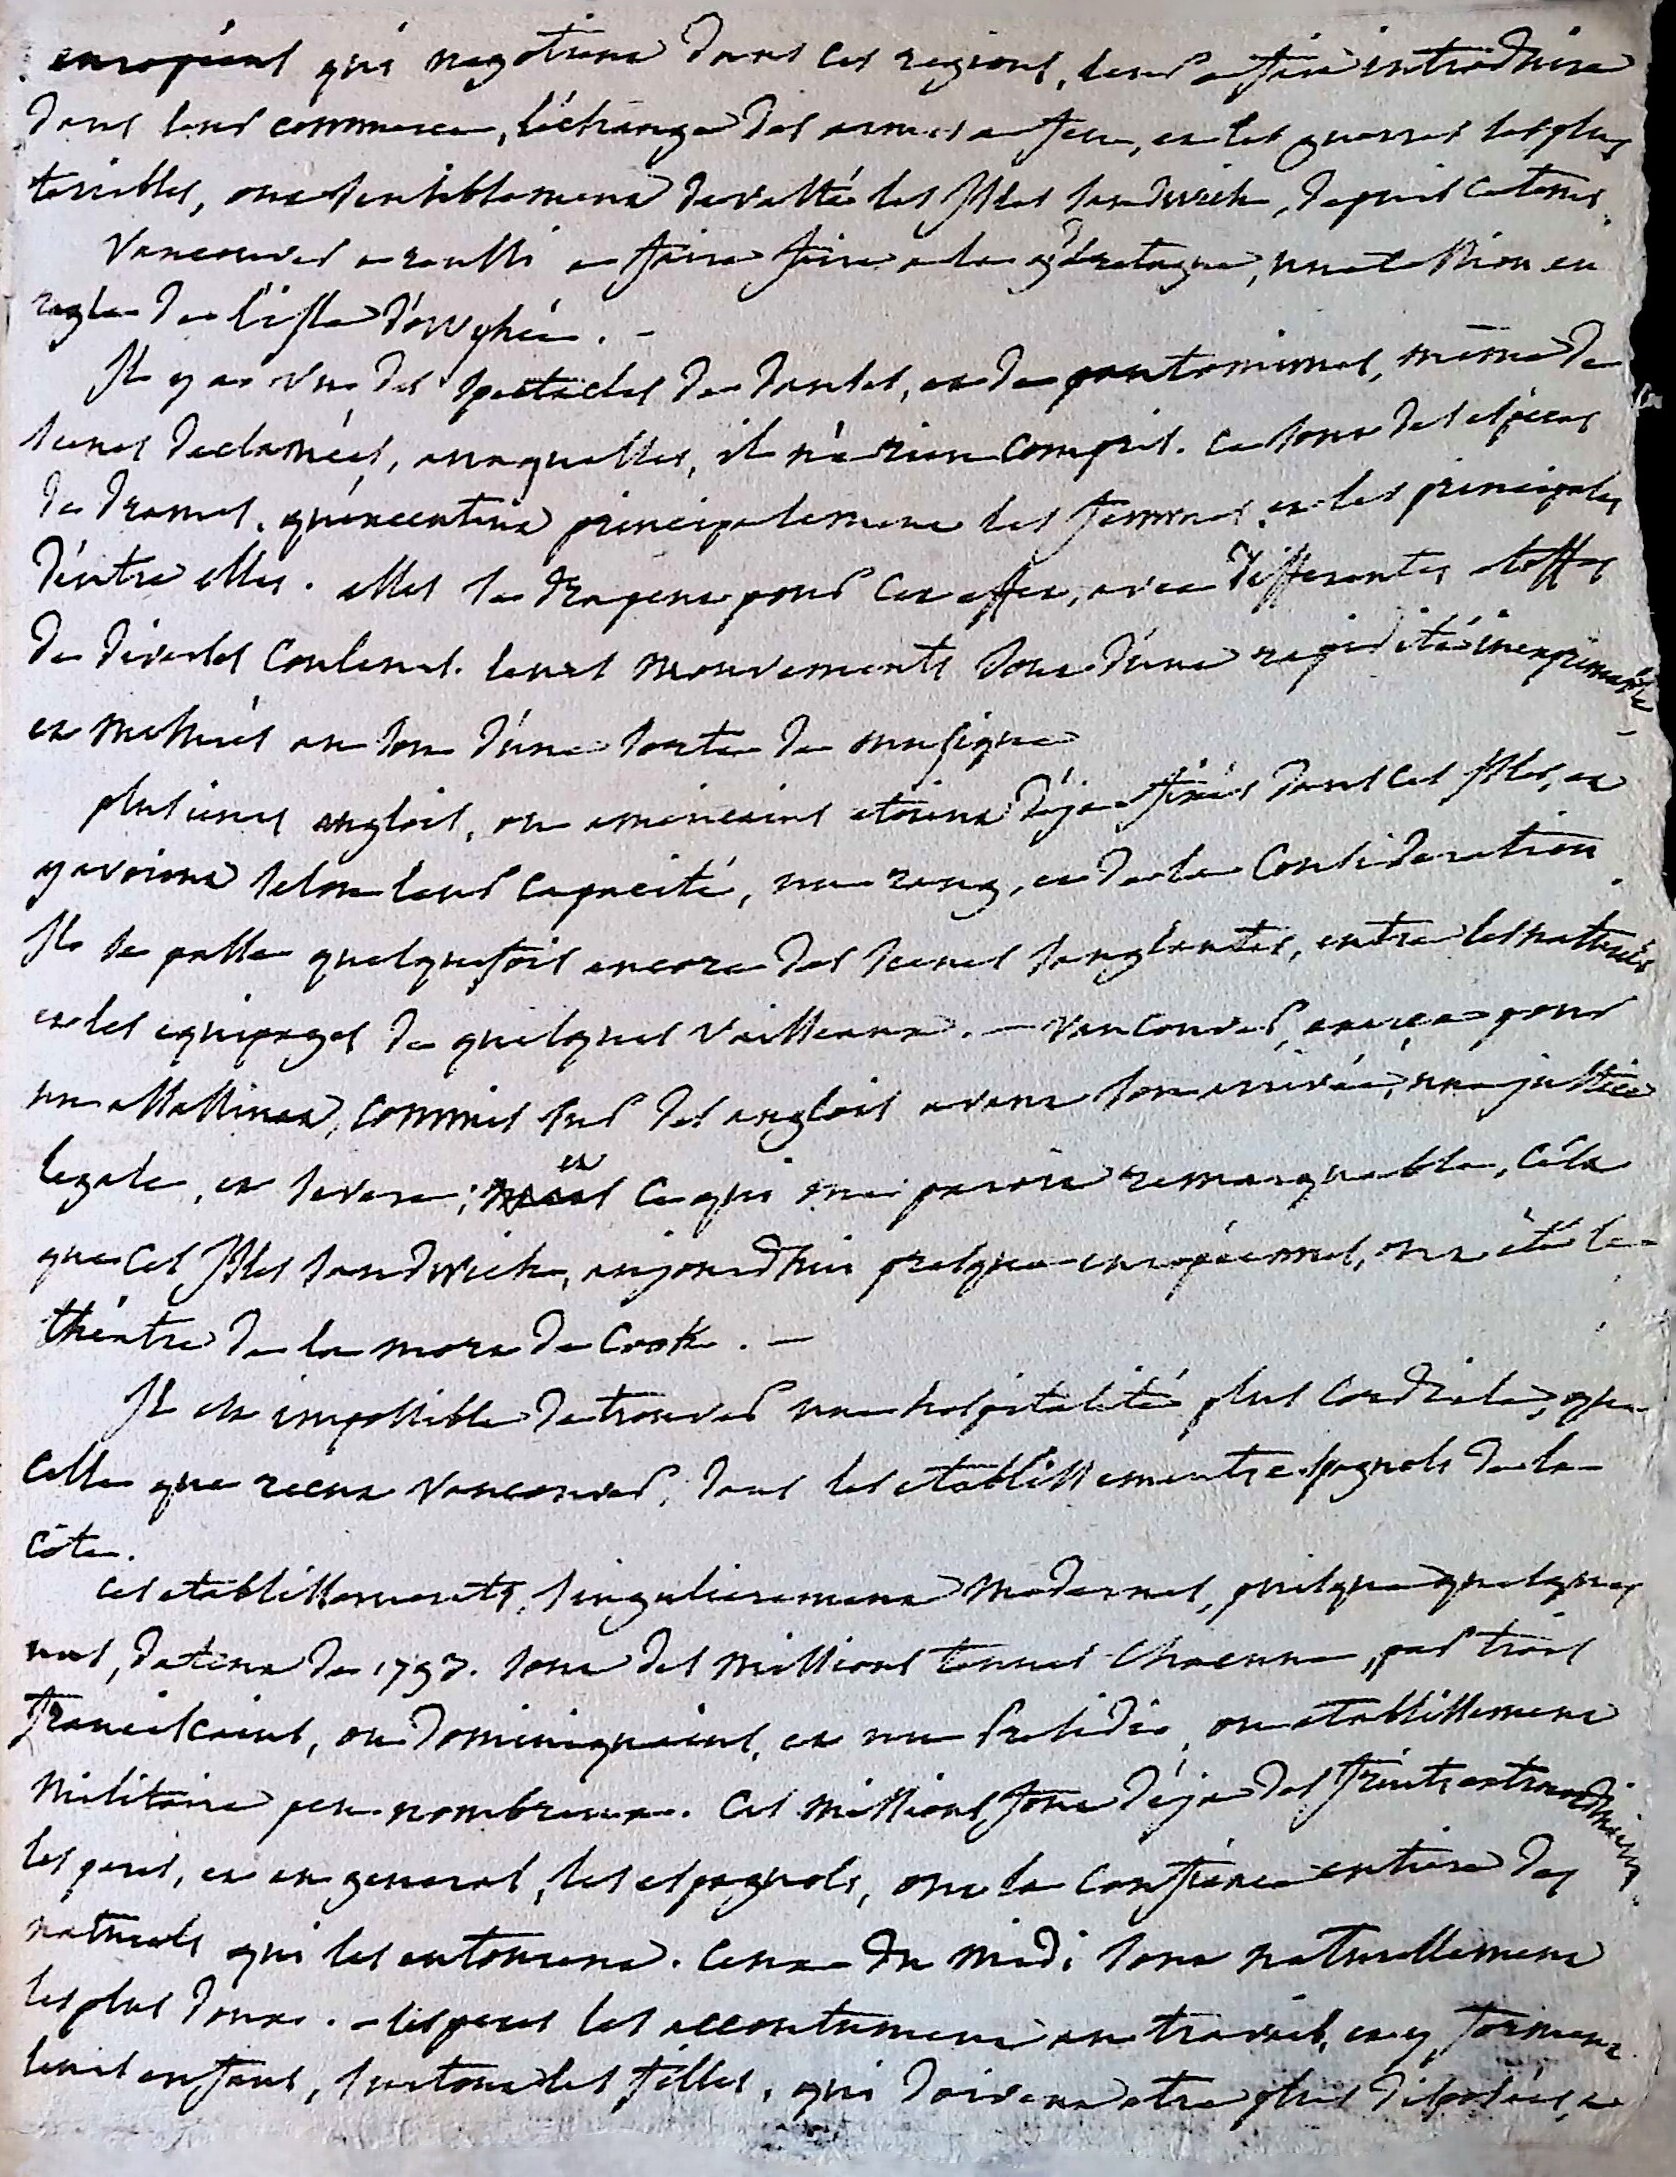 européens qui negotient dans ces regions, leur a fait introduire
dans leur commerce, l'échange des armes a feu, et les guerres les plus
terribles, ont sensiblement devasté les Isles Sandwich, depuis ce tems.
Vancouver a reussi a faire faire a la gde bretagne, une cession en
regle de l'isle d'owyhée. —
Il y a vu des spectacles de danses, et de pantomimes, même de
scenes declamées, auxquelles, il n'a rien compris. ce sont des especes
de drames, qu'executent principalement les femmes, et les principales
d'entre elles. elles se drapent pour cet effet, avec differentes etoffes
de diverses couleurs. leurs mouvements sont d'une rapidité inexprimable
et mesurés au son d'une sorte de musique
plusieurs anglois, ou americains etoient déja fixés dans ces Isles, et
y avoient selon leur capacité, un rang, et de la consideration.
Il se passe quelquefois encore des scenes sanglantes, entre les naturels
et les equipages de quelques vaisseaux. — Vancouver, exerça pour
un assassinat, commis sur des anglois avant son arrivée, une justice
legale, et severe; et ce qui me paroit remarquable, c'est
que ces Isles Sandwich, aujourdhui presque européennes, ont été le
théatre de la mort de Cook. —
Il est impossible de trouver une hospitalité plus cordiale, que
celle que recut Vancouver, dans les etablissements espagnols de la
côte.
ces etablissements, singulierement modernes, puisque quelques
uns, datent de 1793. sont des missions tenues chacune, par trois
franciscains, ou dominiquains, et un Presidio, ou etablissement
militaire peu nombreux. ces missions font déja des fruits extraordinaires.
les peres, et en general, les espagnols, ont la confiance entiere des
naturels qui les entourent. ceux du midi sont naturellement
les plus doux. — les peres les accoutument au travail, et y forment
leurs enfans, surtout les filles, qui doivent etre plus disposées, a